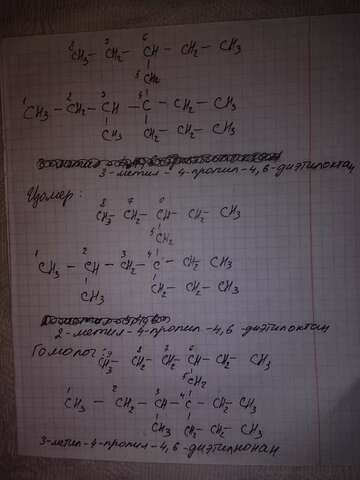 8 7 6
CH3 - CH2 - CH - CH2 - CH3
5 CH2
1 2 3 4
CH3 - CH2 - CH - C - CH2 - CH3
CH3 CH2 - CH2 - CH3
3-метил-4-пропил-4,6-диэтилоктан
Изомер:
8 7 6
CH3 - CH2 - CH - CH2 - CH3
5 CH2
1 2 3 4
CH3 - CH - CH2 - C - CH2 - CH3
CH3 CH2 - CH2 - CH3
2-метил-4-пропил-4,6-диэтилоктан
Гомолог: 9 8 7 6
CH3 - CH2 - CH2 - CH - CH2 - CH3
5 CH2
1 2 3 4
CH3 - CH2 - CH - C - CH2 - CH3
CH3 CH2 - CH2 - CH3
3-метил-4-пропил-4,6-диэтилнонан.